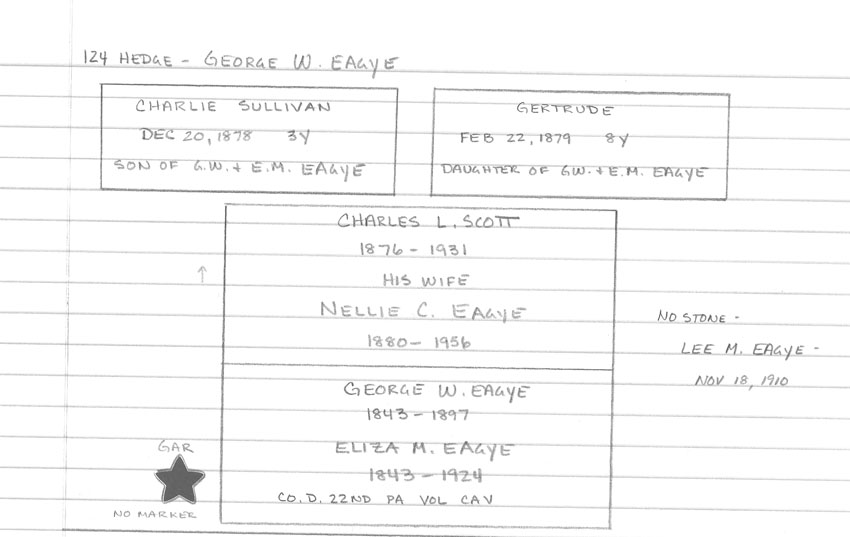 124 HEDGE - GEORGE W. EAGYE
CHARLIE SULLIVAN
DEC 20, 1878 3Y
SON OF G.W. + E.M. EAGYE
GERTRUDE
FEB 22, 1879 8Y
DAUGHTER OF G.W. + E.M. EAGYE
CHARLES L. SCOTT
1876 - 1931
HIS WIFE
NELLIE C. EAGYE
1880 - 1956
NO STONE -
LEE M. EAGYE -
NOV 18, 1910
GEORGE W. EAGYE
1843 - 1897
ELIZA M. EAGYE
1843 - 1924
CO. D. 22ND PA VOL CAV
GAR
NO MARKER